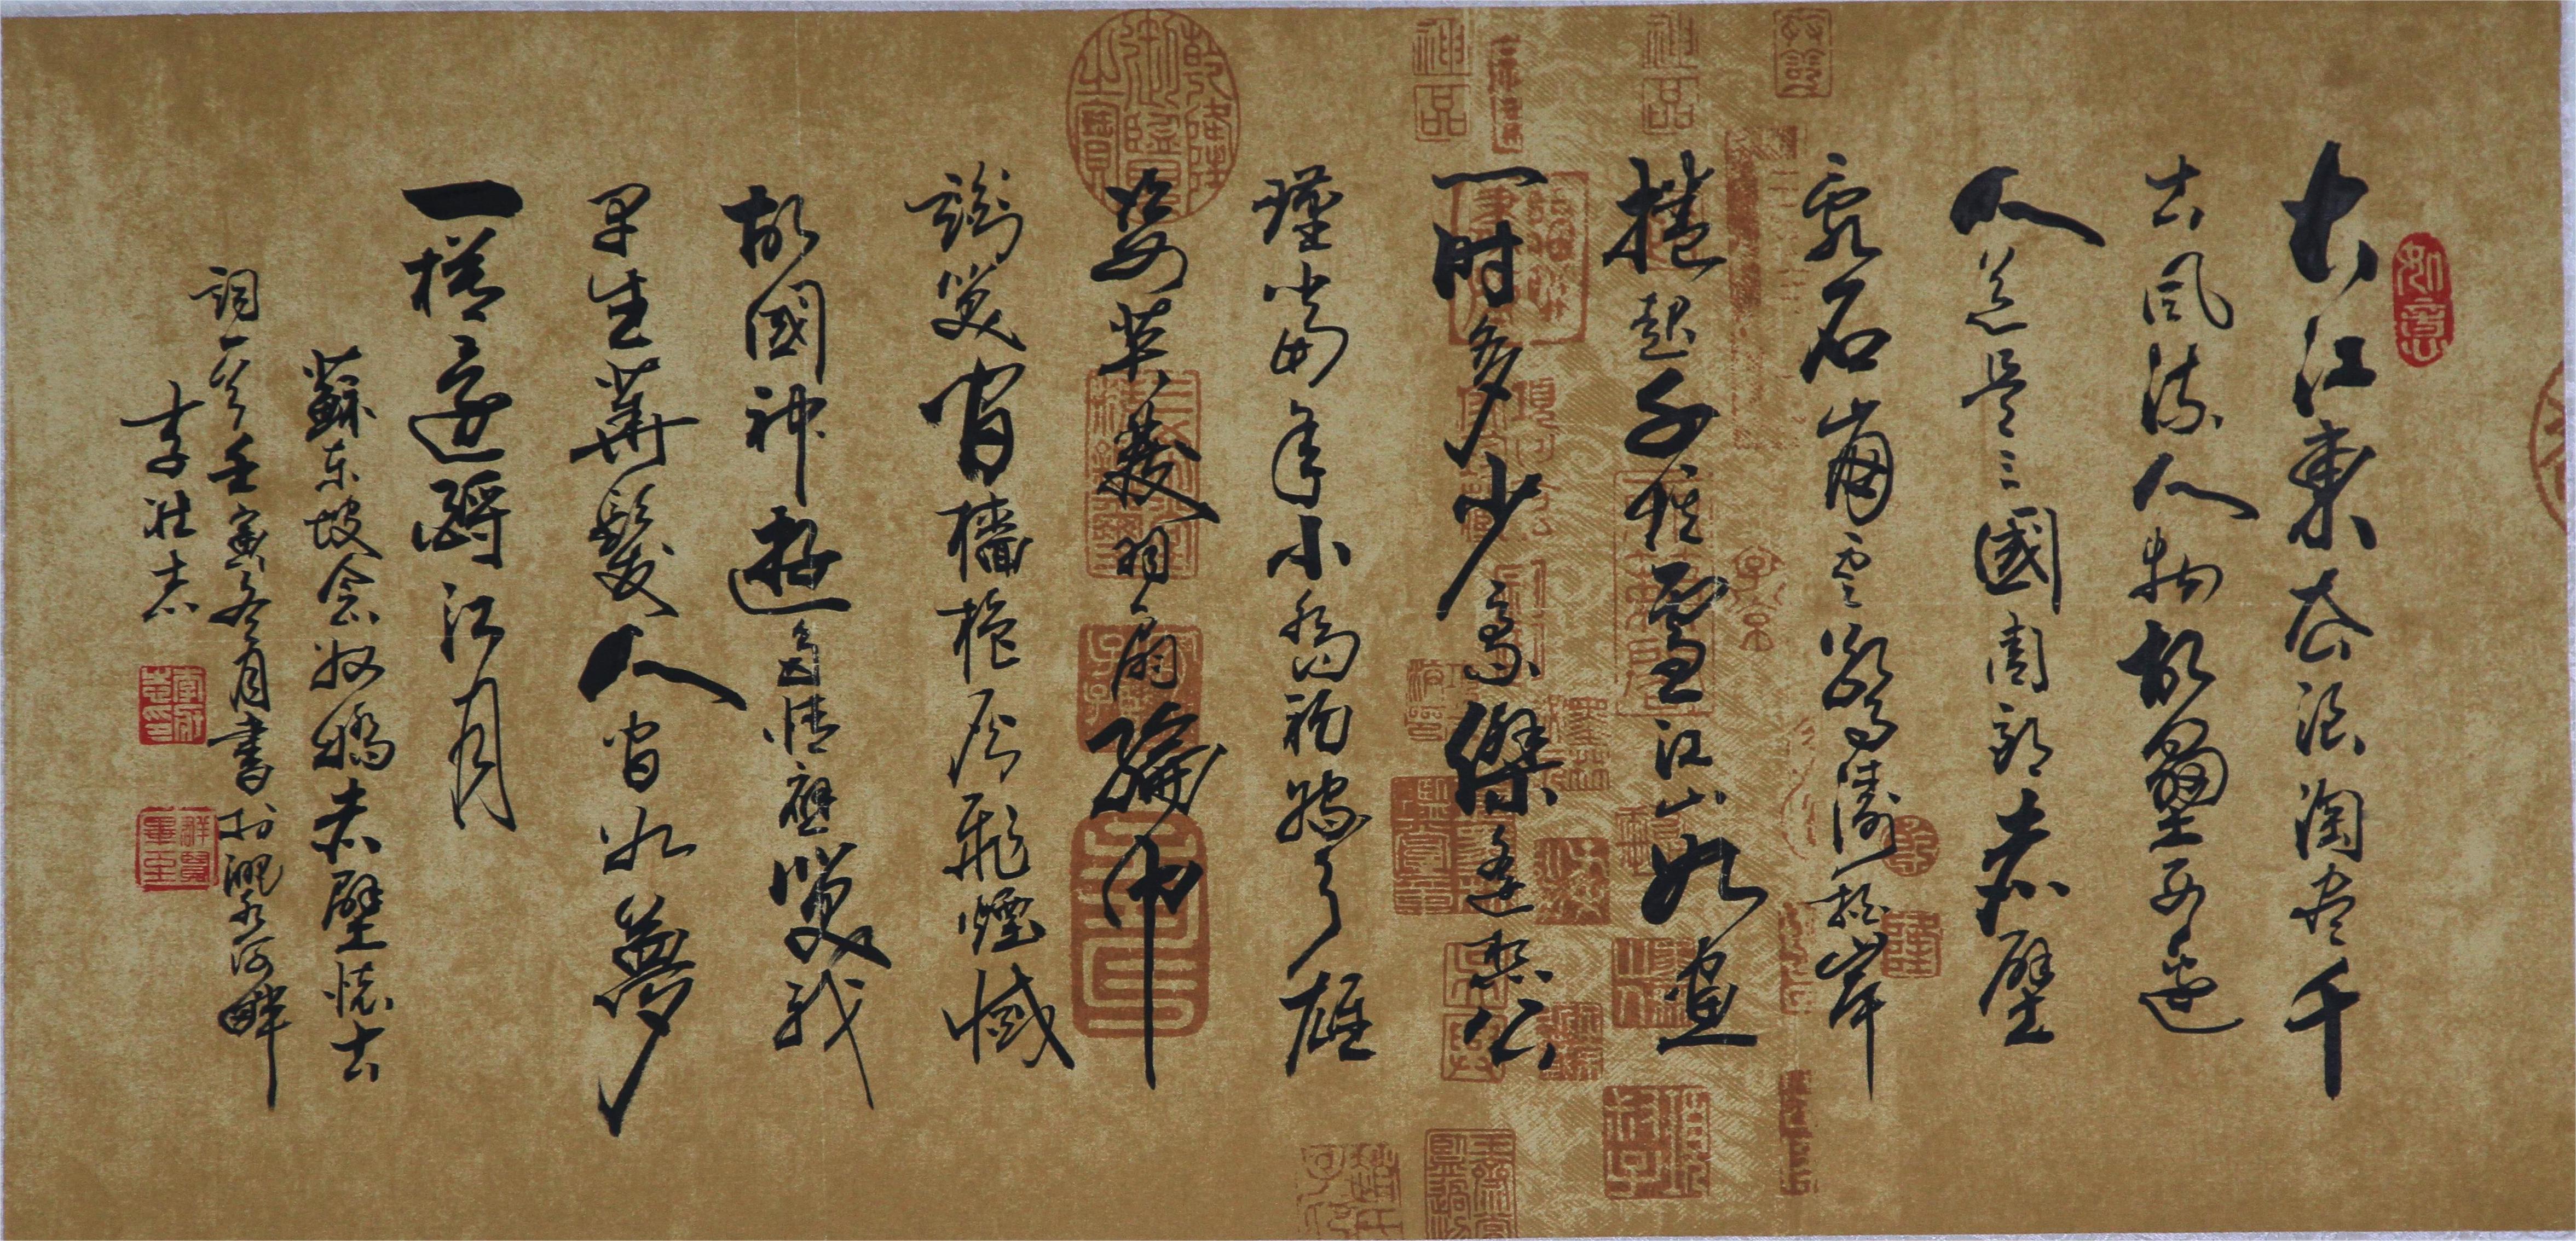 如意
大江東去浪淘尽千
古風流人物故壘西邊
人道是三國周郎赤壁
亂石崩雲驚濤拍岸
捲起千堆雪江山如畫
一时多少豪傑遙想公
瑾當年小喬初嫁了雄
姿英發羽扇綸巾
談笑间檣櫓灰飛煙滅
故國神遊多情應笑我
早生華髮人间如夢
一樽還酹江月
蘇东坡念奴嬌赤壁怀古
詞一首壬寅冬月書於水河畔
李壯志
群賢畢至
乾隆御覽之寶
神品
神品